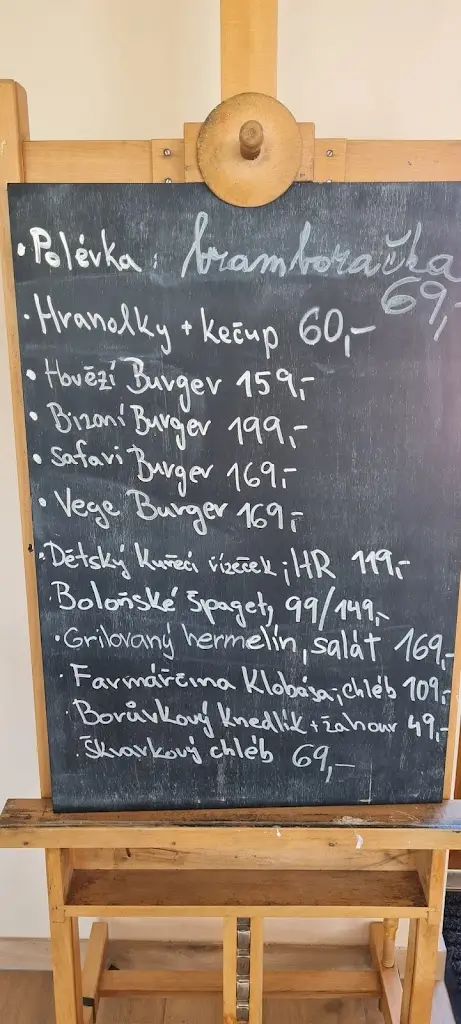 • Polévka: bramboračka
69,-
• Hranolky + kečup 60,-
• Hovězí Burger 159,-
• Bizoní Burger 199,-
• Safari Burger 169,-
• Vege Burger 169,-
• Dětský kuřecí řízeček, HR 119,-
Boloňské špagety 99/149,-
• Grilovaný hermelín, salát 169,-
• Farmářčina klobása, chléb 109,-
• Borůvkový knedlík + žahour 49,-
• Škvarkový chléb 69,-